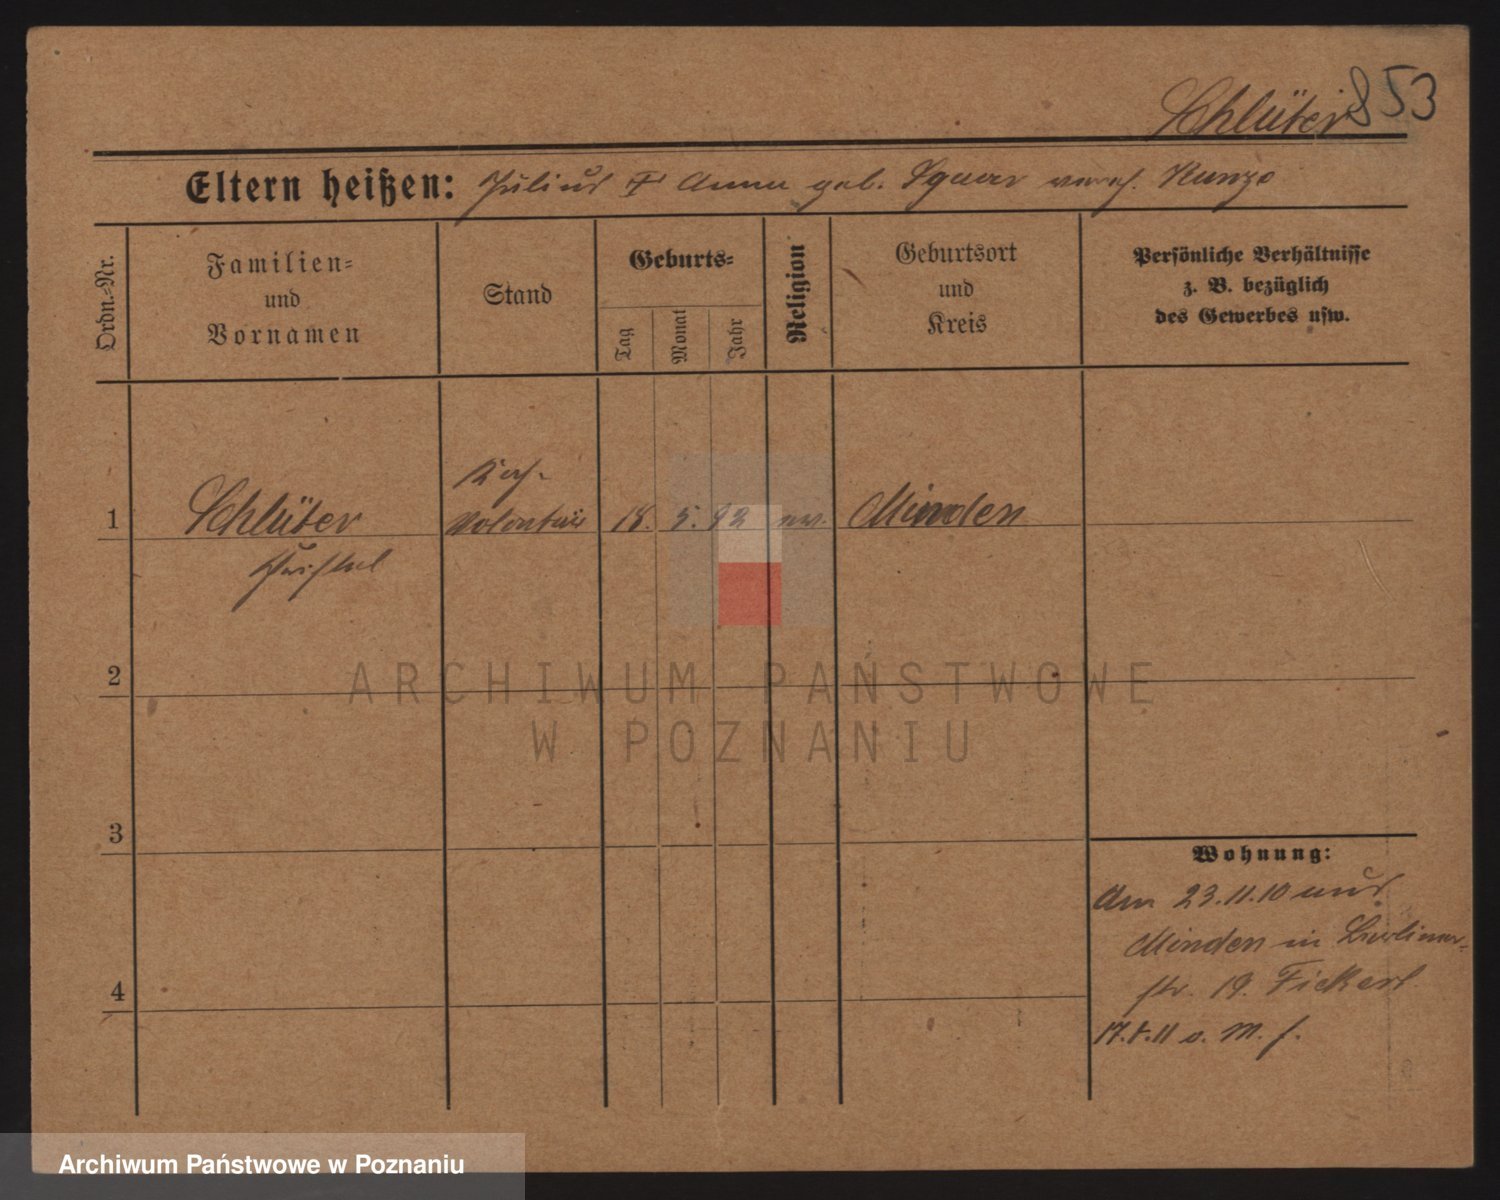 Schlüter 853
Eltern heißen: Julius † Anna geb. verh. Kunze
Ordn.=Nr.
Familien=
und
Vornamen
Stand
Geburts=
Tag
Monat
Jahr
Religion
Geburtsort
und
Kreis
Persönliche Verhältnisse
z. B. bezüglich
des Gewerbes usw.
1 Schlüter
Volontär 18. 5. 92 ev. Minden
2
3
4
Wohnung:
Am 23.11.10 aus
Minden in Berliner-
str. 19. Fickert.
17.8.11 o. M. f.
ARCHIWUM PAŃSTWOWE
W POZNANIU
Archiwum Państwowe w Poznaniu